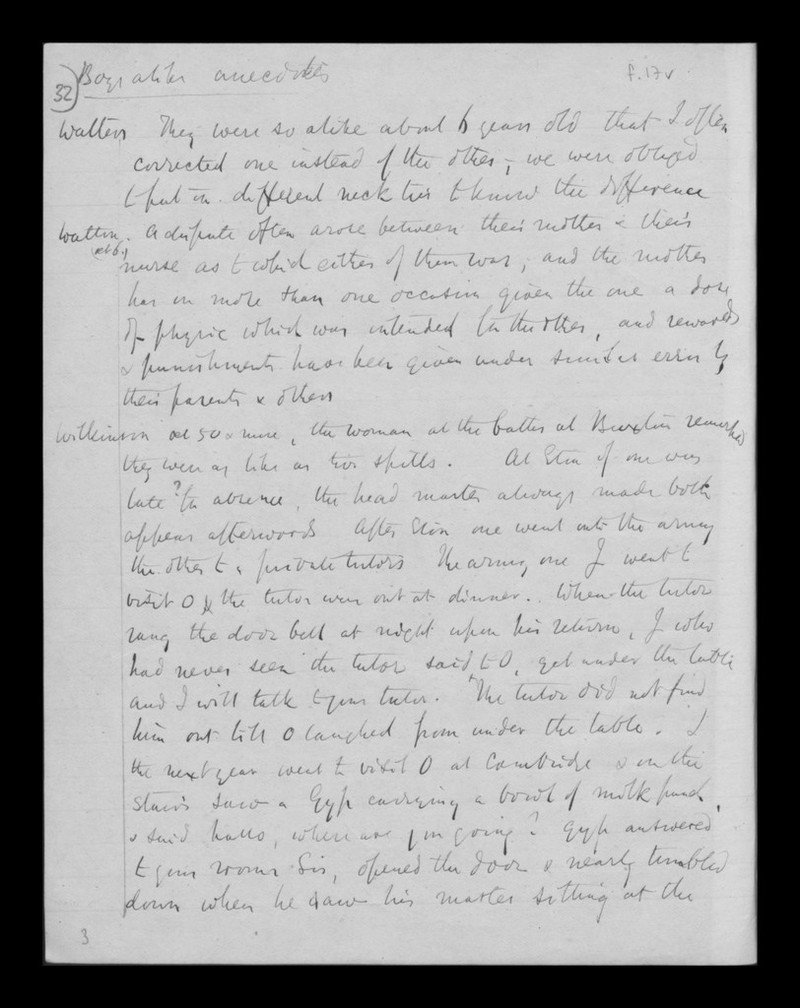 32) Boys alike anecdotes f.17v
Walters They were so alike about 6 years old that I often
corrected one instead of the other; we were obliged
to put on different neck ties to know the difference
Walton. A dispute often arose between their mother & their
at 6
nurse as to which either of them was; and the mother
has on more than one occasion given the one a dose
of physic which was intended for the other, and rewards
& punishments have been given under similar error by
their parents & others
Wilkinson at 50 & more, the woman at the baths at Buxton remarked
they were as like as two spills. At Eton if one was
late ? for absence, the head master always made both
appear afterwards After Eton one went into the army
the other to a private tutors The army one J went to
visit O & the tutor were out at dinner.. When the tutor
rang the door bell at night upon his return, J who
had never seen the tutor said to O, get under the table
and I will talk to your tutor. The tutor did not find
him out till O laughed from under the table. J
the next year went to visit O at Cambridge & on the
stairs saw a Gyp carrying a bowl of milk punch,
& said hallo, where are you going? Gyp answered
to your rooms Sir, opened the door & nearly tumbled
down when he saw his master sitting at the
3